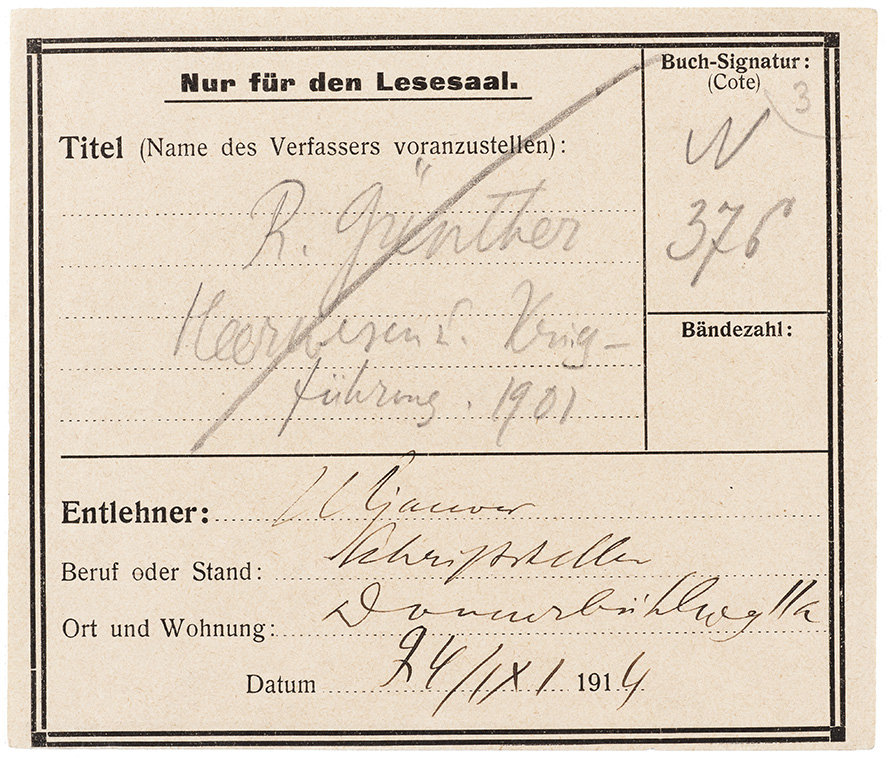 Nur für den Lesesaal.
Buch-Signatur:
(Cote)
3
Titel (Name des Verfassers voranzustellen):
W
376
R. Günther
Heerwesen u. Krieg-
führung. 1901
Bändezahl:
Entlehner: Uljanow
Beruf oder Stand: Schriftsteller
Ort und Wohnung: Donnerbühlweg 11a
Datum 24/IX 1914